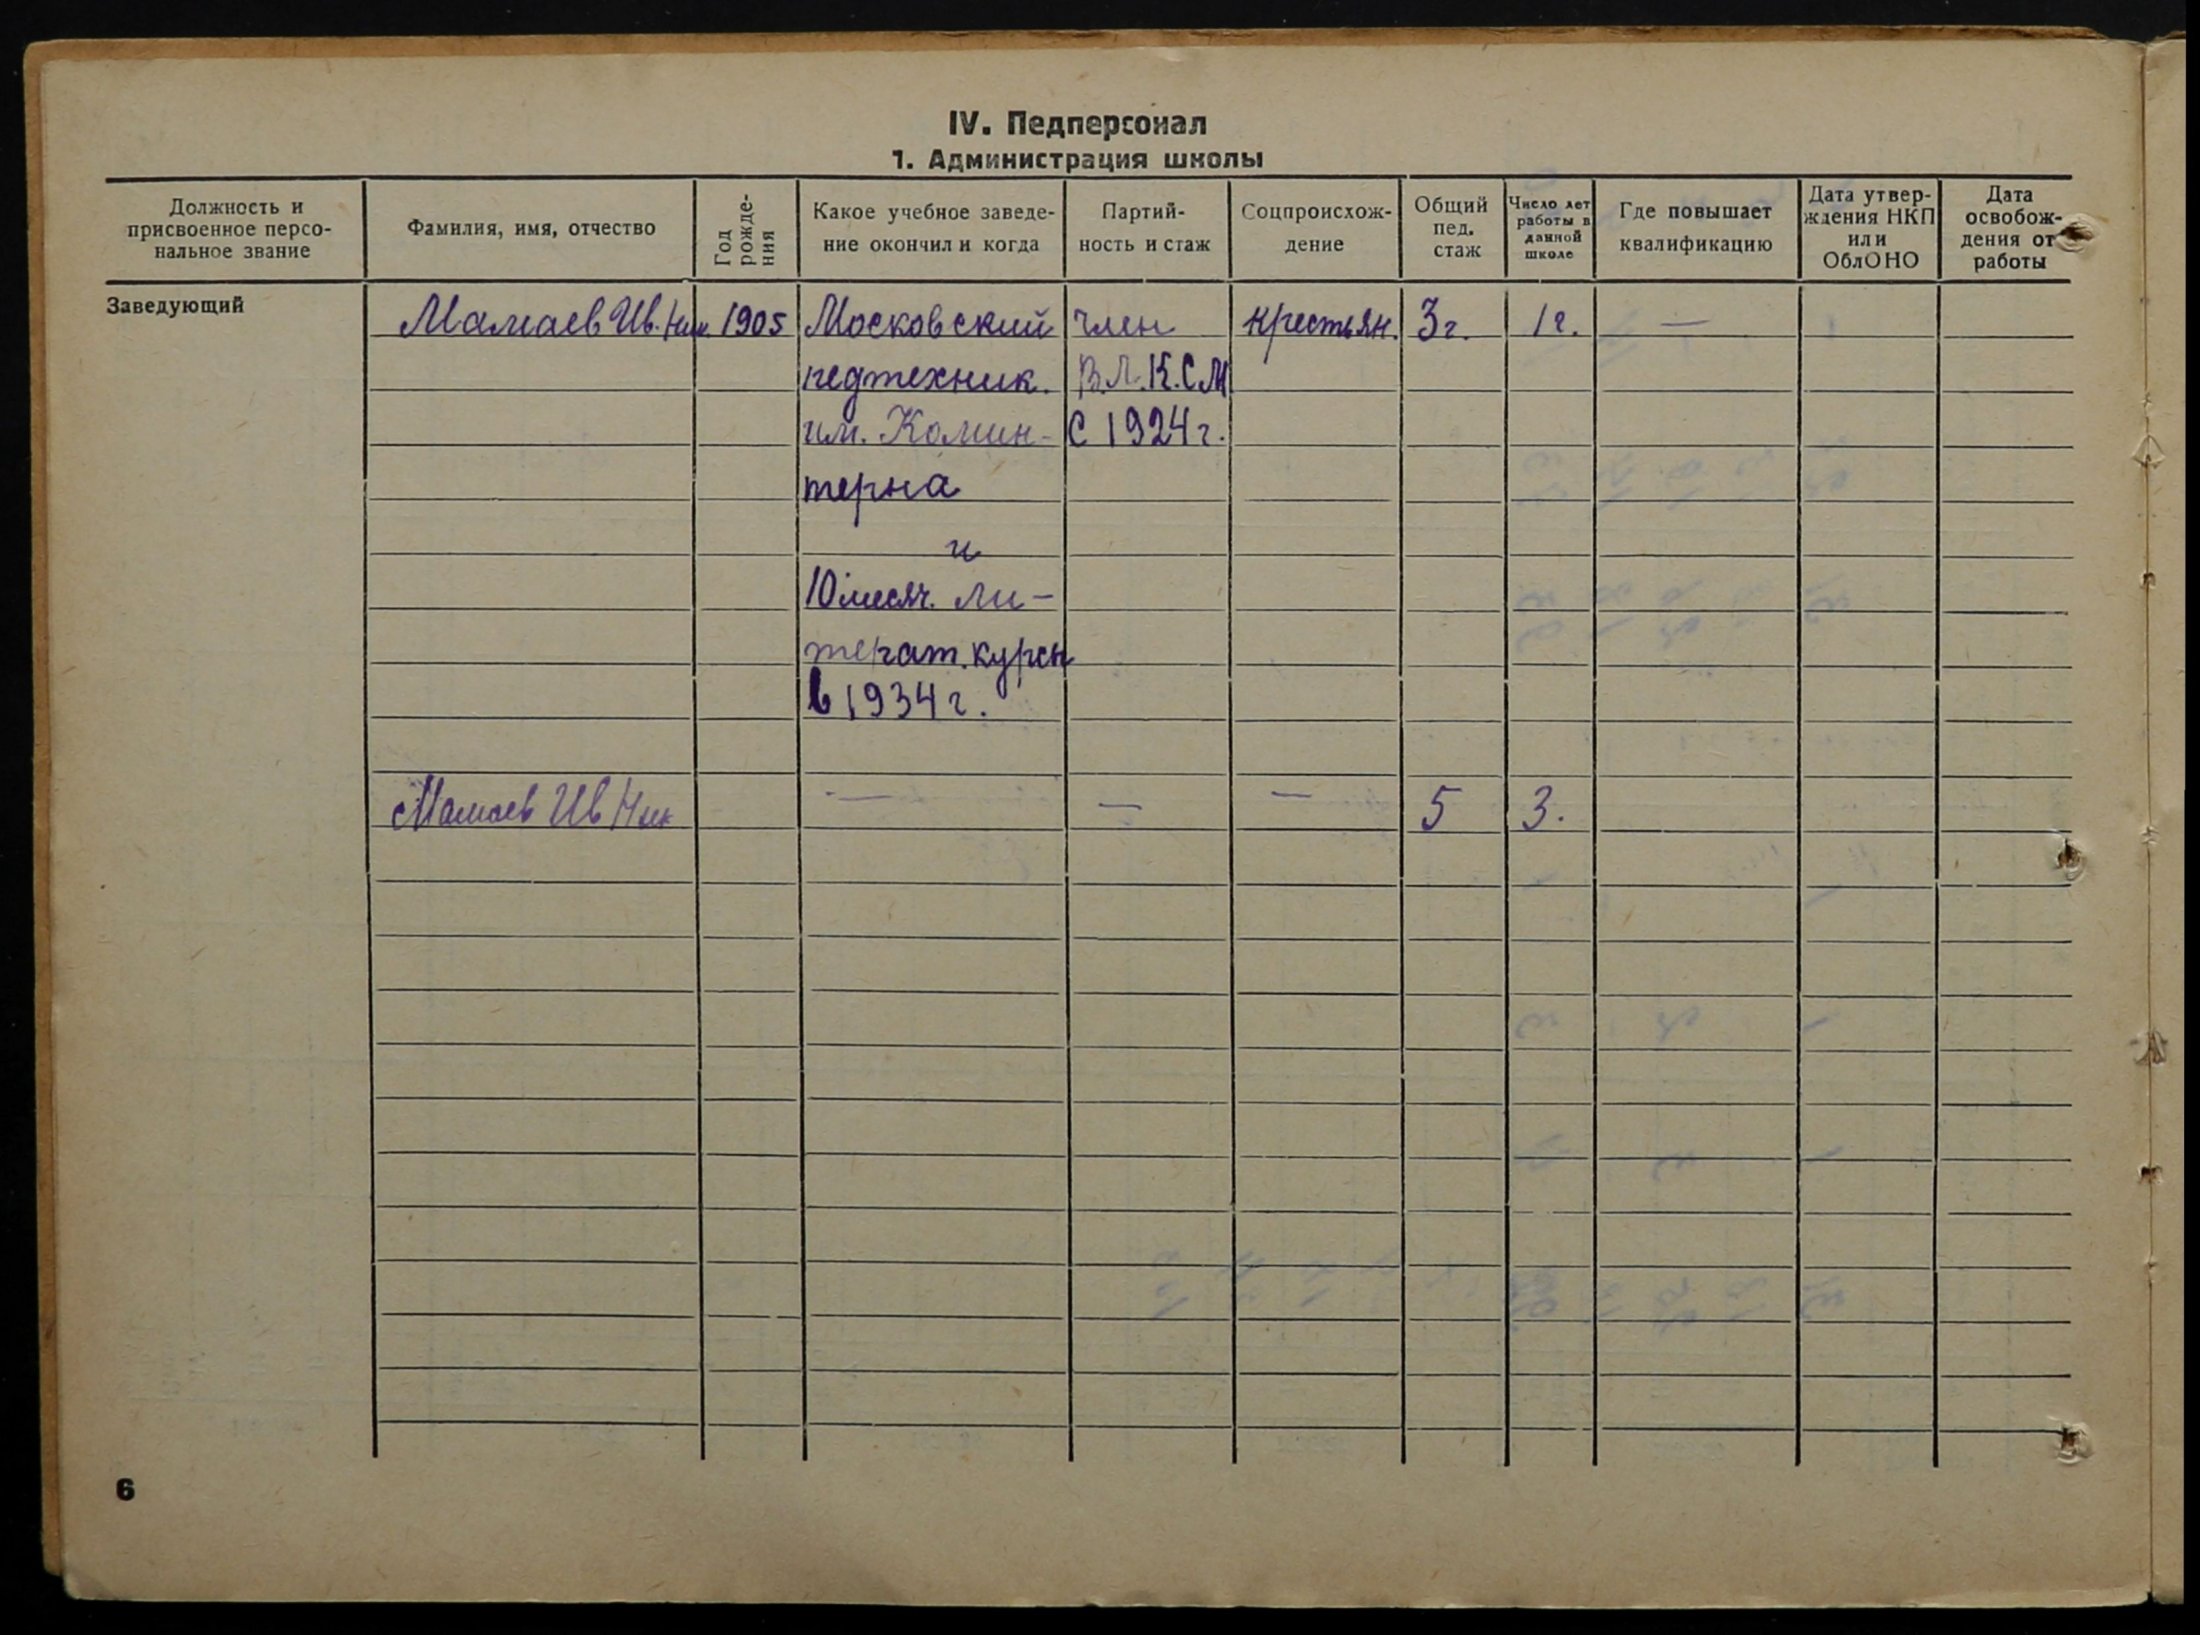 IV. Педперсонал
1. Администрация школы
Должность и
присвоенное персо-
нальное звание
Фамилия, имя, отчество
Год
рожде-
ния
Какое учебное заведе-
ние окончил и когда
Партий-
ность и стаж
Соцпроисхож-
дение
Общий
пед.
стаж
Число лет
работы в
данной
школе
Где повышает
квалификацию
Дата утвер-
ждения НКП
или
ОблОНО
Дата
освобож-
дения от
работы
Заведующий
Мамаев Ив. Ник. 1905 Московский член крестьян. 3 г. 1 г. —
педтехник. В.Л.К.С.М
им. Комин- с 1924 г.
терна
и
10 месяч. ли-
терат. курсы
в 1934 г.
Мамаев Ив Ник — — — 5 3.
6